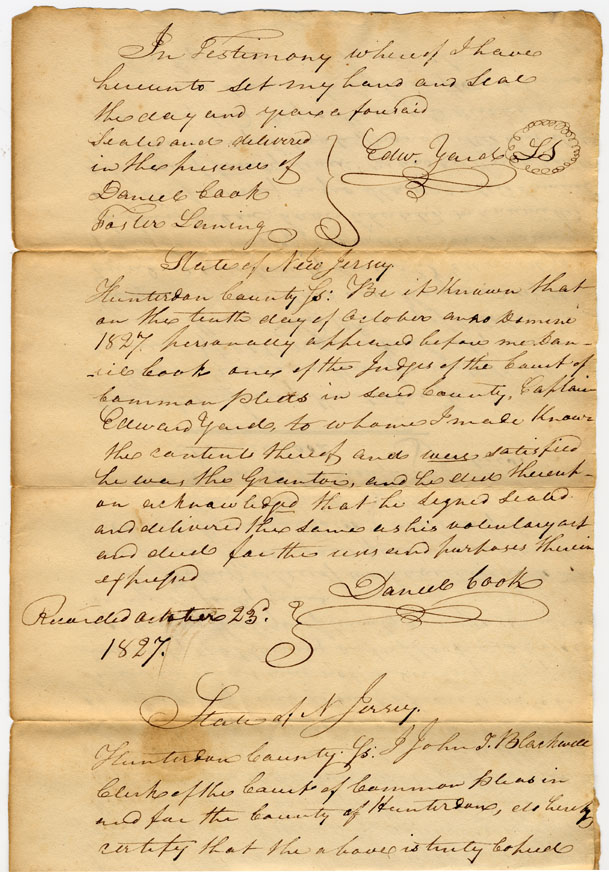 In Testimony whereof I have
hereunto set my hand and Seal
the day and year aforesaid
Sealed and delivered
in the presence of
Daniel Cook
Foster Laning
Edw. Yard LS
State of New Jersey
Hunterdon County Ss: Be it Known that
on the tenth day of October anno Domini
1827 personally appeared before me Dan-
-iel Cook one of the Judges of the Court of
Common Pleas in said County, Captain
Edward Yard, to whome I made Known
the contents thereof and were satisfied
he was the Grantor, and he did thereup-
on acknowledged that he signed sealed
and delivered the same as his voluntary act
and deed for the uses and purposes therein
expressed
Daniel Cook
Recorded October 23d.
1827.
State of N Jersey.
Hunterdon County Ss: I John T. Blackwell
Clerk of the Court of Common Pleas in
and for the County of Hunterdon, do hereby
certify that the above is truly Copied